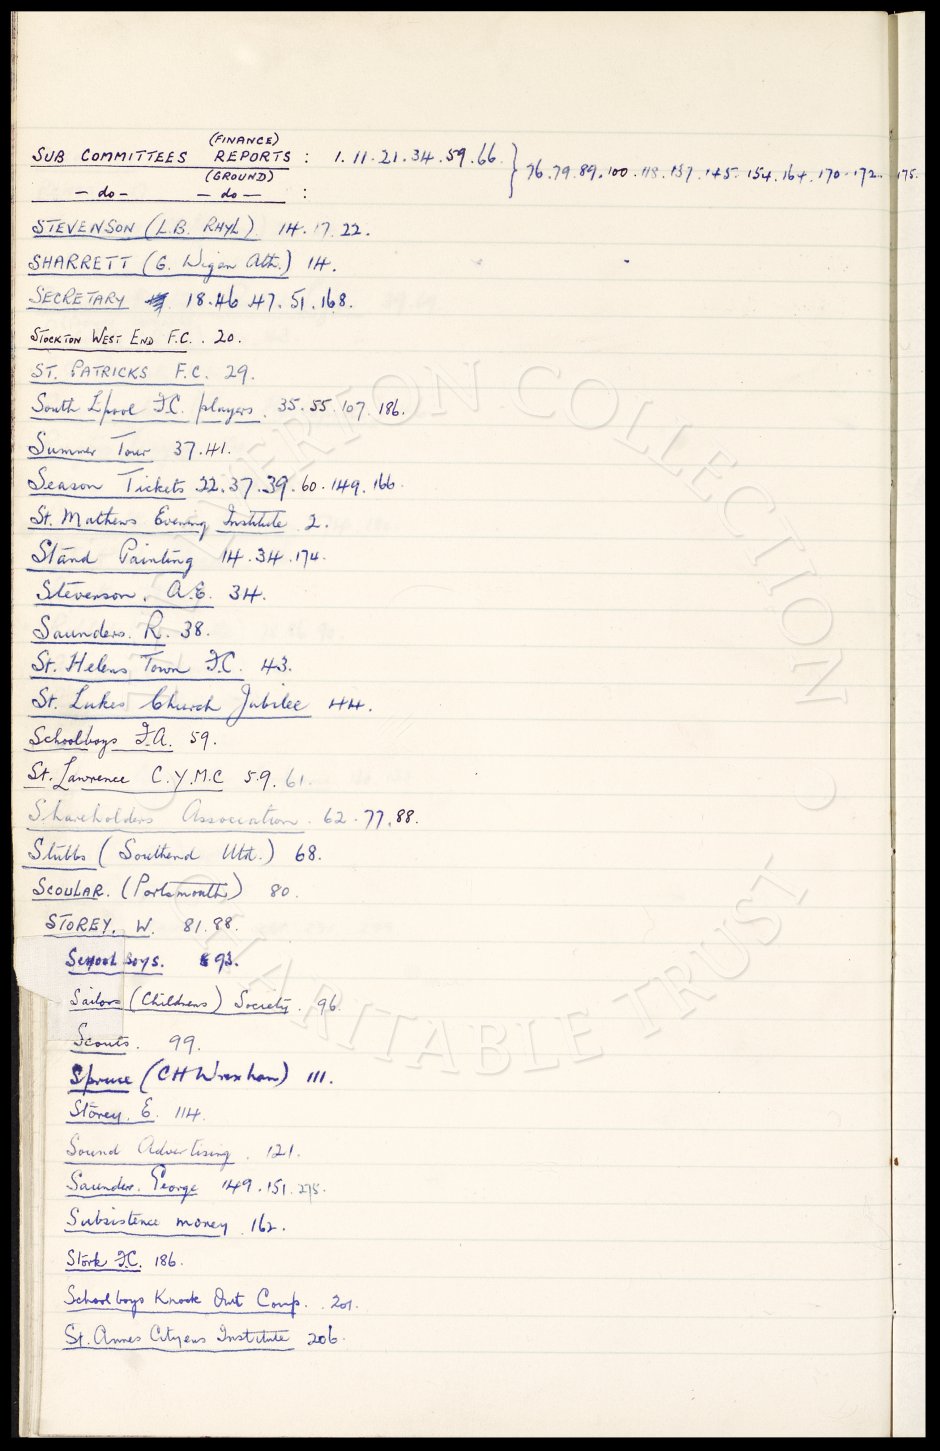 (FINANCE)
SUB COMMITTEES REPORTS : 1. 11. 21. 34. 59. 66. } 76. 79. 89. 100. 118. 137. 145. 154. 164. 170. 172. 175.
(GROUND)
— do — — do — :
STEVENSON (L.B. RHYL) 14. 17. 22.
SHARRETT (G. Wigan Ath.) 14.
SECRETARY 18. 46. 47. 51. 168.
STOCKTON WEST END F.C. . 20.
ST. PATRICKS F.C. 29.
South Lpool F.C. players. 35. 55. 107. 186.
Summer Tour 37. 41.
Season Tickets 22. 37. 39. 60. 149. 166.
St. Mathews Evening Institute 2.
Stand Painting 14. 34. 174.
Stevenson. A.E. 34.
Saunders. R. 38.
St. Helens Town F.C. 43.
St. Lukes Church Jubilee 44.
Schoolboys F.A. 59.
St. Lawrence C.Y.M.C 59. 61.
Shareholders Association. 62. 77. 88.
Stubbs (Southend Utd.) 68.
SCOULAR. (Portsmouth) 80.
STOREY. W. 81. 88.
School boys. 93.
Sailors (Childrens) Society. 96.
Scouts. 99.
Spruce (CH Wrexham) 111.
Storey. E. 114.
Sound Advertising. 121.
Saunders. George 149. 151. 275.
Subsistence money. 162.
Stork F.C. 186.
Schoolboys Knock Out Comp. . 201.
St. Annes Cityens Institute 206.
EVERTON COLLECTION
CHARITABLE TRUST